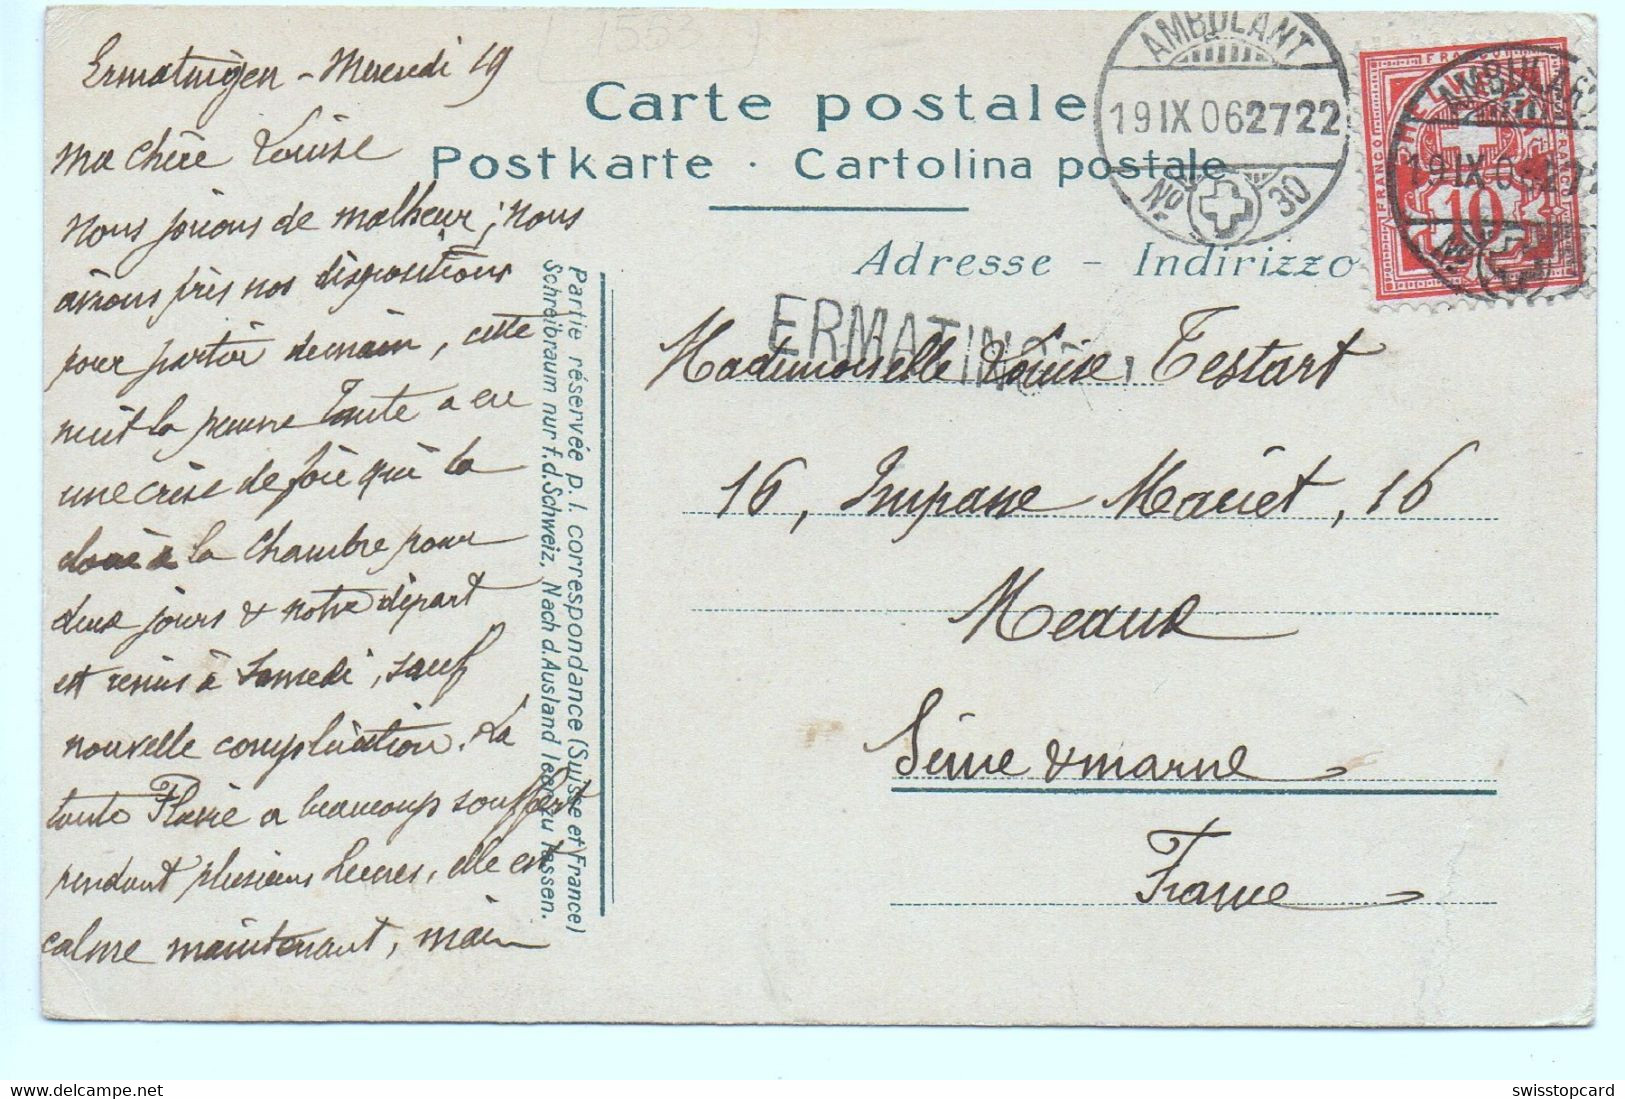 Ermatingen - Mercredi 19
Ma chère Louise
Nous jouons de malheur ; nous
avions pris nos dispositions
pour partir demain, cette
nuit la pauvre Tante a eu
une crise de foie qui la
à la chambre pour
deux jours & notre départ
est remis à Samedi, sauf
nouvelle complication. La
tante Flavie a beaucoup souffert
pendant plusieurs heures, elle est
calme maintenant, mais
Carte postale
Postkarte · Cartolina postale
Adresse - Indirizzo
Partie réservée p. l. correspondance (Suisse et France)
Schreibraum nur f. d. Schweiz, Nach d. Ausland leer zu lassen.
AMBULANT
19 IX 06 2722
No 30
FRANCO
HELVETIA
FRANCO
10
AMBULANT
19 IX 06 272
No
ERMATINGEN
Mademoiselle Louise Testart
16, Impasse Maciet, 16
Meaux
Seine & Marne
France
swisstopcard
delcampe.net